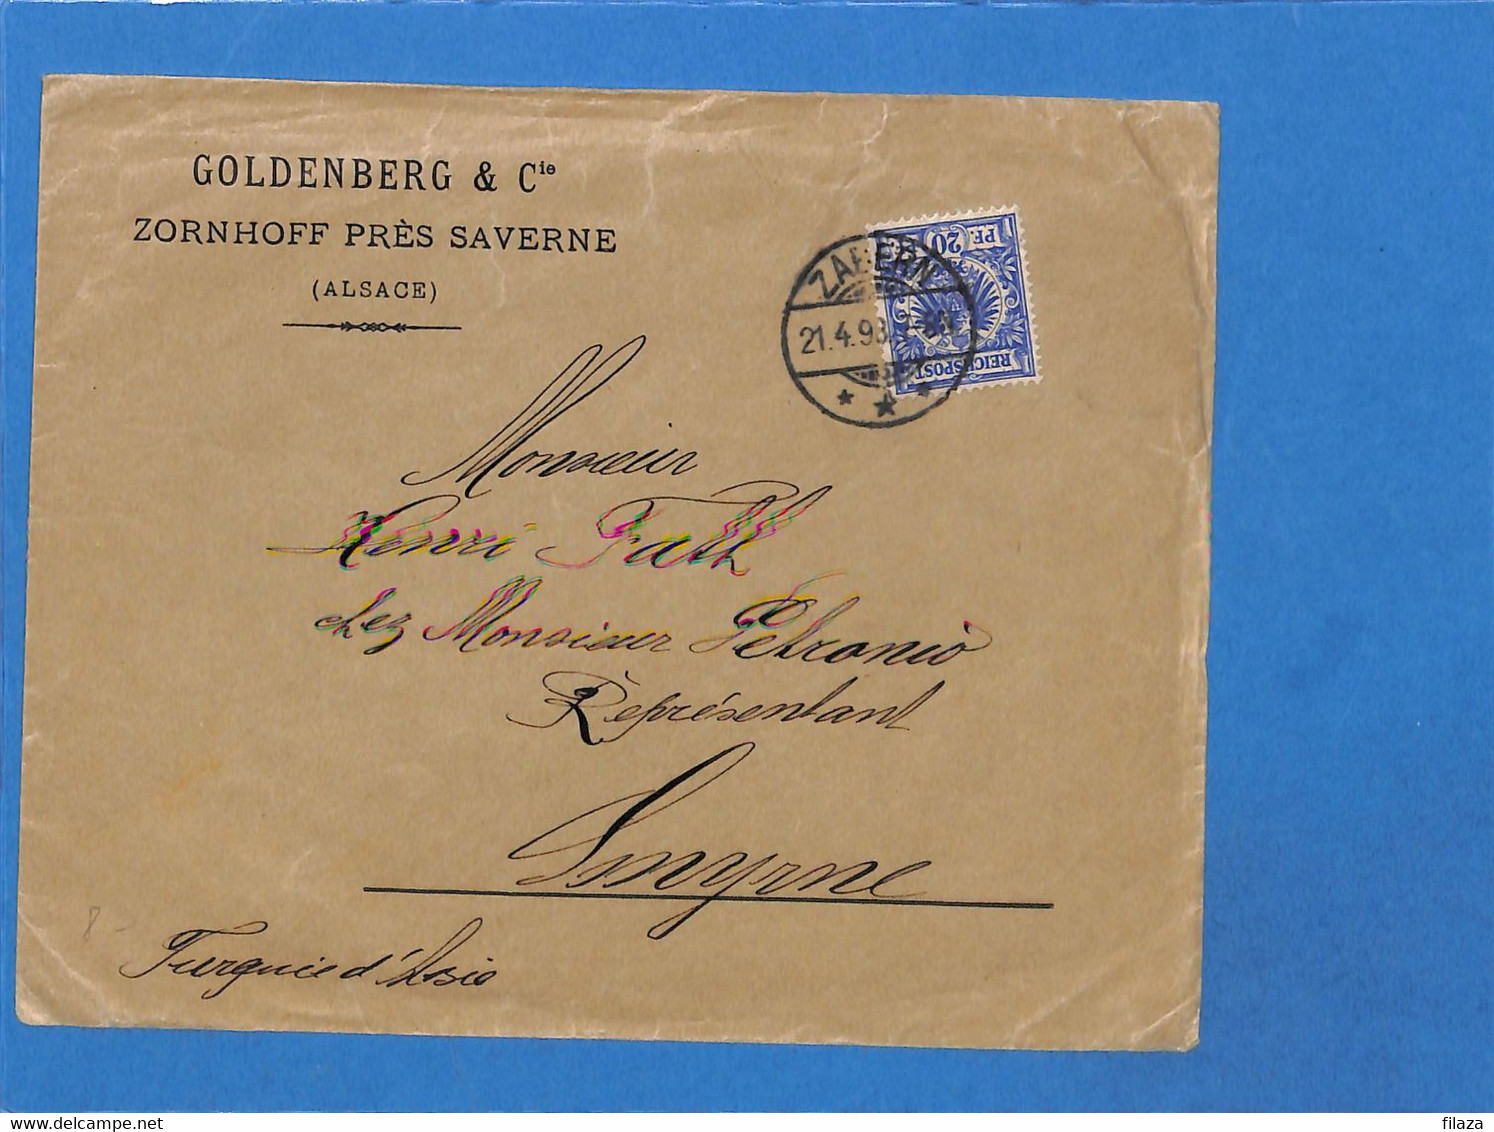 GOLDENBERG & Cie
ZORNHOFF PRÈS SAVERNE
(ALSACE)
PF. 20
REICHSPOST
ZABERN
21.4.98.
Monsieur
Henri Falk
chez Monsieur Petronio
Représentant
Smyrne
Turquie d'Asie
filaza